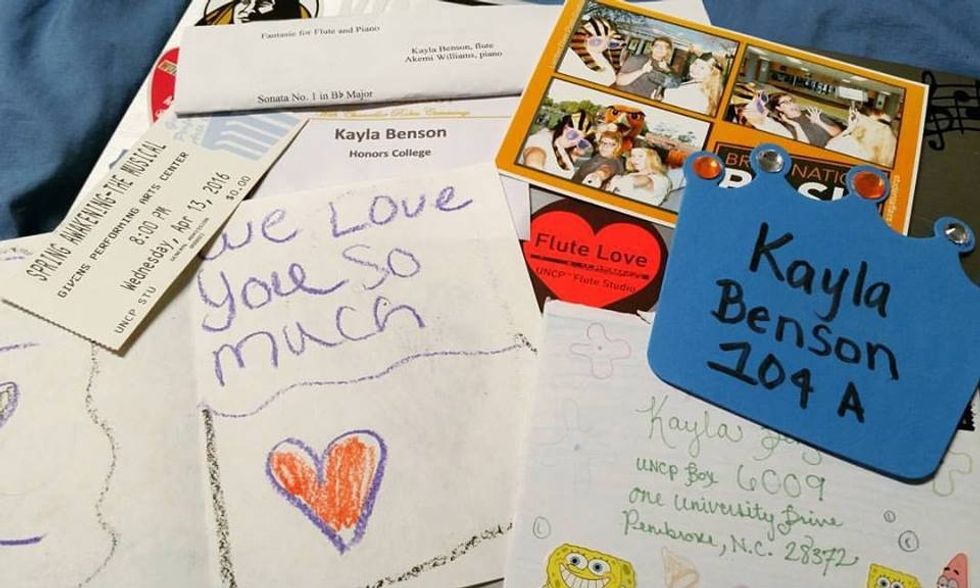 Fantasie for Flute and Piano
Kayla Benson, flute
Akemi Williams, piano
Sonata No. 1 in B♭ Major
Kayla Benson
Honors College
SPRING AWAKENING-THE MUSICAL
GIVENS PERFORMING ARTS CENTER
8:00 PM
Wednesday, Apr 13, 2016
UNCP STU
$0.00
We Love
You So
much
Flute Love
UNCP Flute Studio
Kayla
Benson
104 A
Kayla
UNCP Box 6009
One University Drive
Pembroke, N.C. 28372